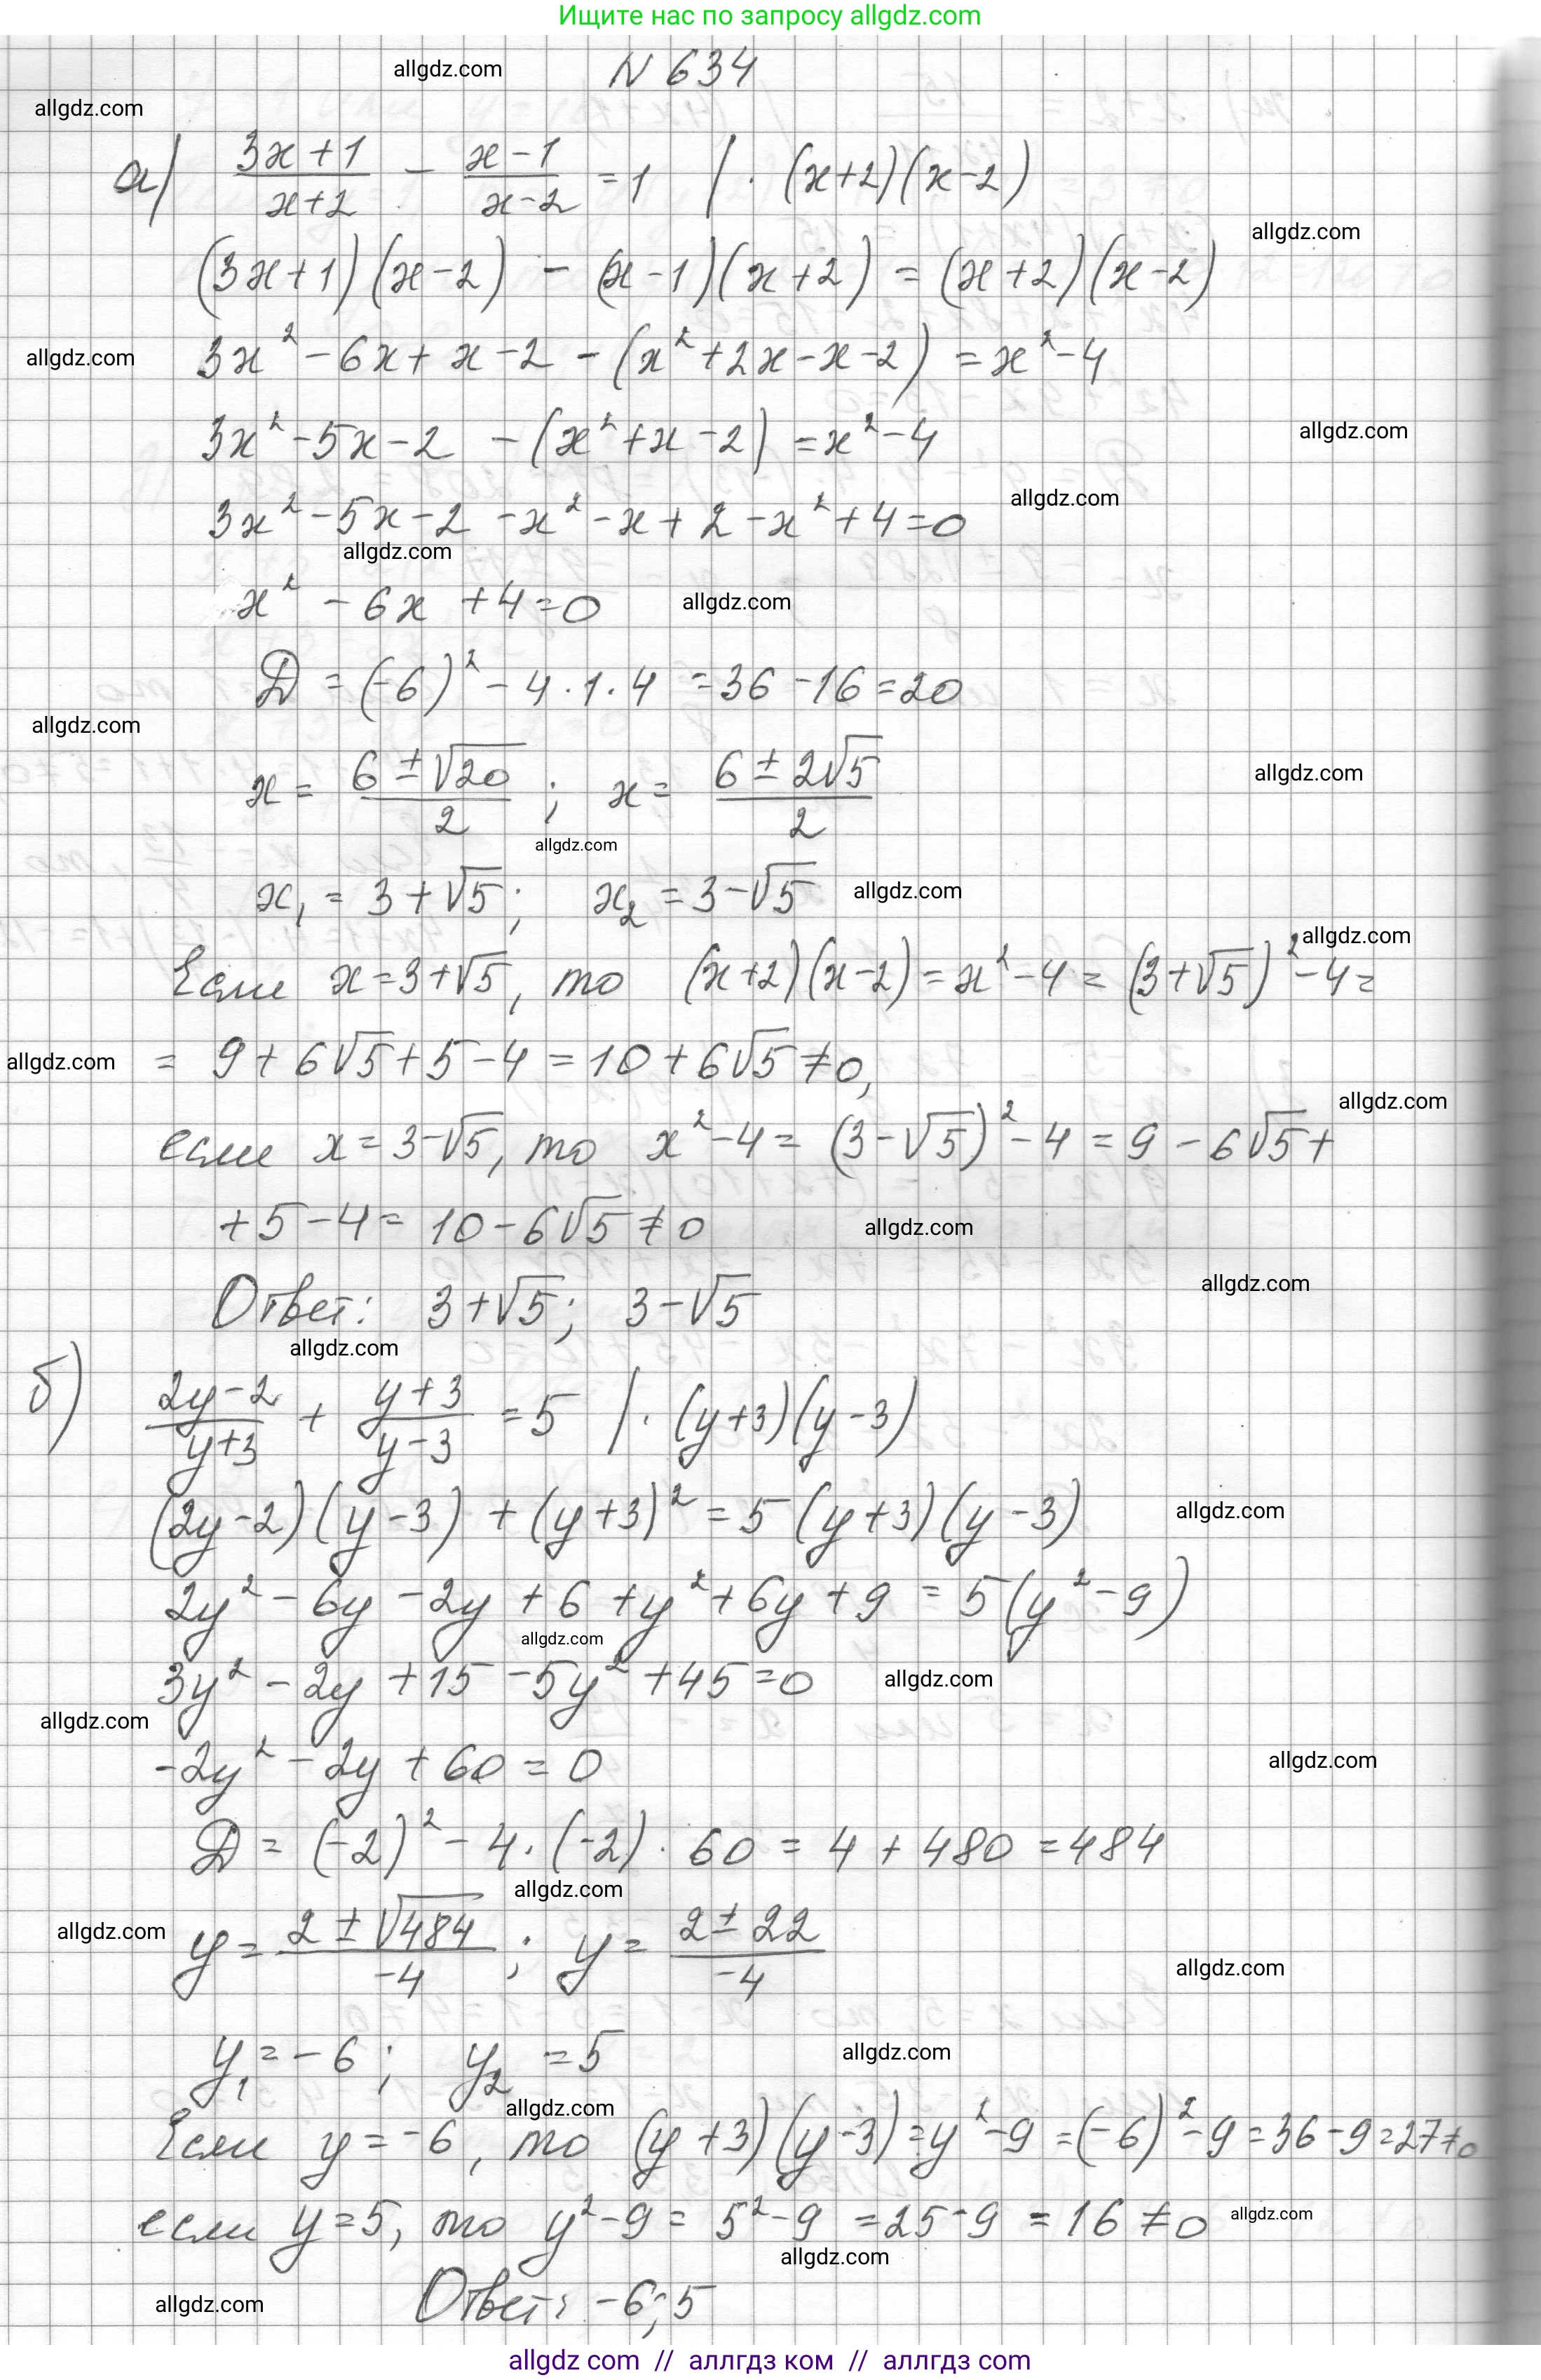 Ищите нас по запросу allgdz.com
allgdz.com
N 634
allgdz.com
а) (3x+1)/(x+2) - (x-1)/(x-2) = 1 | · (x+2)(x-2)
allgdz.com
(3x+1)(x-2) - (x-1)(x+2) = (x+2)(x-2)
allgdz.com
3x² - 6x + x - 2 - (x² + 2x - x - 2) = x² - 4
allgdz.com
3x² - 5x - 2 - (x² + x - 2) = x² - 4
allgdz.com
3x² - 5x - 2 - x² - x + 2 - x² + 4 = 0
allgdz.com
x² - 6x + 4 = 0
allgdz.com
D = (-6)² - 4 · 1 · 4 = 36 - 16 = 20
allgdz.com
allgdz.com
x = (6 ± √20)/2 ; x = (6 ± 2√5)/2
allgdz.com
x₁ = 3 + √5 ; x₂ = 3 - √5
allgdz.com
allgdz.com
Если x = 3 + √5, то (x+2)(x-2) = x² - 4 = (3 + √5)² - 4 =
allgdz.com
= 9 + 6√5 + 5 - 4 = 10 + 6√5 ≠ 0,
allgdz.com
если x = 3 - √5, то x² - 4 = (3 - √5)² - 4 = 9 - 6√5 +
+ 5 - 4 = 10 - 6√5 ≠ 0
allgdz.com
allgdz.com
Ответ: 3 + √5 ; 3 - √5
allgdz.com
б) (2y-2)/(y+3) + (y+3)/(y-3) = 5 | · (y+3)(y-3)
(2y-2)(y-3) + (y+3)² = 5(y+3)(y-3)
allgdz.com
2y² - 6y - 2y + 6 + y² + 6y + 9 = 5(y² - 9)
allgdz.com
3y² - 2y + 15 - 5y² + 45 = 0
allgdz.com
allgdz.com
-2y² - 2y + 60 = 0
allgdz.com
D = (-2)² - 4 · (-2) · 60 = 4 + 480 = 484
allgdz.com
allgdz.com
y = (2 ± √484)/-4 ; y = (2 ± 22)/-4
allgdz.com
y₁ = -6 ; y₂ = 5
allgdz.com
allgdz.com
Если y = -6, то (y+3)(y-3) = y² - 9 = (-6)² - 9 = 36 - 9 = 27 ≠ 0
если y = 5, то y² - 9 = 5² - 9 = 25 - 9 = 16 ≠ 0
allgdz.com
allgdz.com
allgdz.com
Ответ: -6; 5
allgdz.com // аллгдз ком // аллгдз com